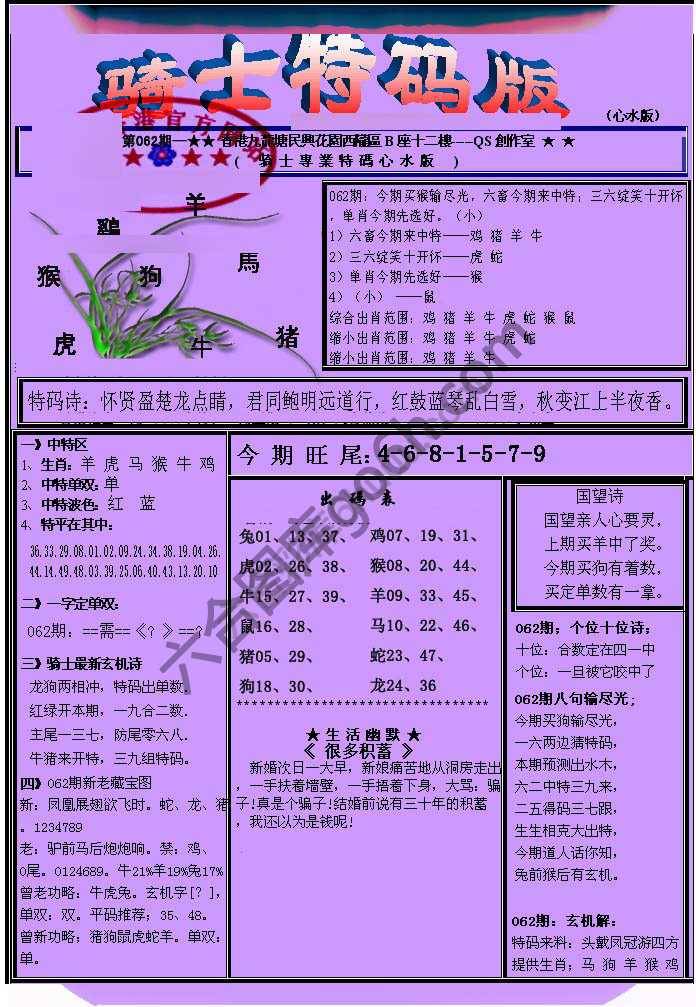 骑士特码版
(心水版)
港官方网站
第062期—★★ 香港九龍塘民興花園西福區 B 座十二樓----QS 創作室 ★ ★
( 騎 士 專 業 特 碼 心 水 版 )
羊
鷄
猴 狗 馬
虎 牛 猪
062期: 今期买猴输尽光, 六畜今期来中特; 三六绽笑十开怀
, 单肖今期先选好。(小)
1) 六畜今期来中特——鸡 猪 羊 牛
2) 三六绽笑十开怀——虎 蛇
3) 单肖今期先选好——猴
4) (小) ——鼠
综合出肖范围: 鸡 猪 羊 牛 虎 蛇 猴 鼠
缩小出肖范围: 鸡 猪 羊 牛 虎 蛇
缩小出肖范围: 鸡 猪 羊 牛
特码诗: 怀贤盈楚龙点睛, 君同鲍明远道行, 红鼓蓝琴乱白雪, 秋变江上半夜香。
一》中特区
1、生肖: 羊 虎 马 猴 牛 鸡
2、中特单双: 单
3、中特波色: 红 蓝
4、特平在其中:
36.33.29.08.01.02.09.24.34.38.19.04.26.
44.14.49.48.03.39.25.06.40.43.13.20.10
二》一字定单双:
062期: ==需==《? 》==?
三》骑士最新玄机诗
龙狗两相冲, 特码出单数.
红绿开本期, 一九合二数.
主尾一三七, 防尾零六八.
牛猪来开特, 三九组特码。
四》062期新老藏宝图
新: 凤凰展翅欲飞时。蛇、龙、猪
。1234789
老: 驴前马后炮炮响。禁: 鸡、
0尾。0124689。牛21%羊19%兔17%
曾老功略: 牛虎兔。玄机字[?],
单双: 双。平码推荐; 35、48。
曾新功略; 猪狗鼠虎蛇羊。单双:
单。
今 期 旺 尾: 4-6-8-1-5-7-9
出 码 表
兔01、13、37、 鸡07、19、31、
虎02、26、38、 猴08、20、44、
牛15、27、39、 羊09、33、45、
鼠16、28、 马10、22、46、
猪05、29、 蛇23、47、
狗18、30、 龙24、36
********************************
★ 生 活 幽 默 ★
《 很多积蓄 》
新婚次日一大早, 新娘痛苦地从洞房走出
, 一手扶着墙壁, 一手捂着下身, 大骂: 骗
子!真是个骗子!结婚前说有三十年的积蓄
, 我还以为是钱呢!
国望诗
国望亲人心要灵,
上期买羊中了奖。
今期买狗有着数,
买定单数有一拿。
062期; 个位十位诗;
十位: 合数定在四一中
个位: 一旦被它咬中了
062期八句输尽光;
今期买狗输尽光,
一六两边猜特码,
本期预测出水木,
六二中特三九来,
二五得码三七跟,
生生相克大出特,
今期道人话你知,
兔前猴后有玄机。
062期: 玄机解:
特码来料: 头戴凤冠游四方
提供生肖; 马 狗 羊 猴 鸡
六合图库go6h.com